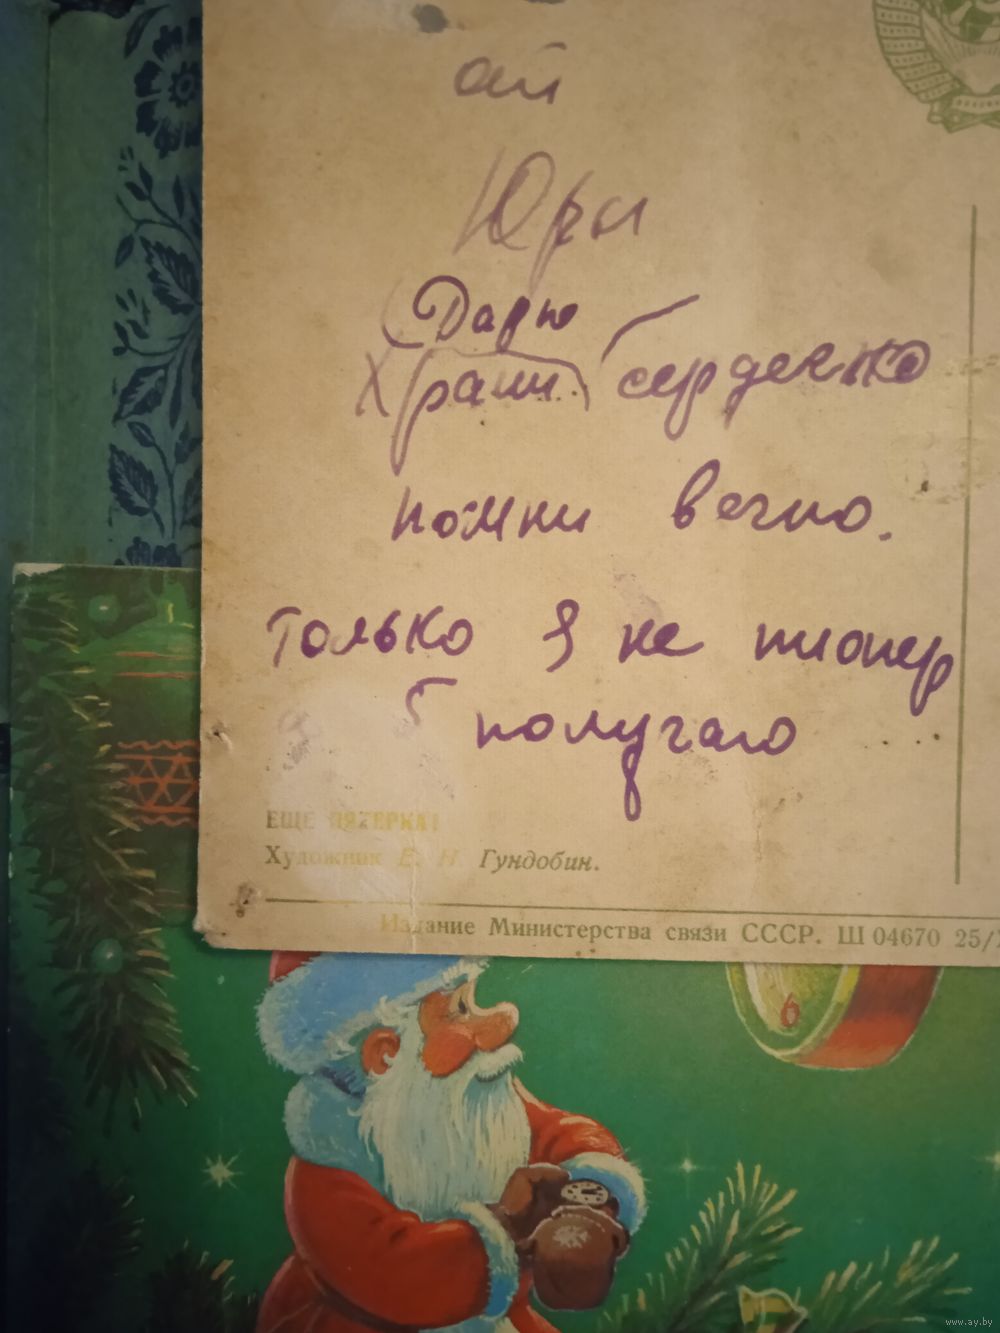 от
Юры
Дарю
Храни сердечко
помни вечно.
только я не пионер
5 получаю
ЕЩЕ ПЯТЕРКА!
Художник Е. Н. Гундобин.
Издание Министерства связи СССР. Ш 04670 25/
6
www.ay.by